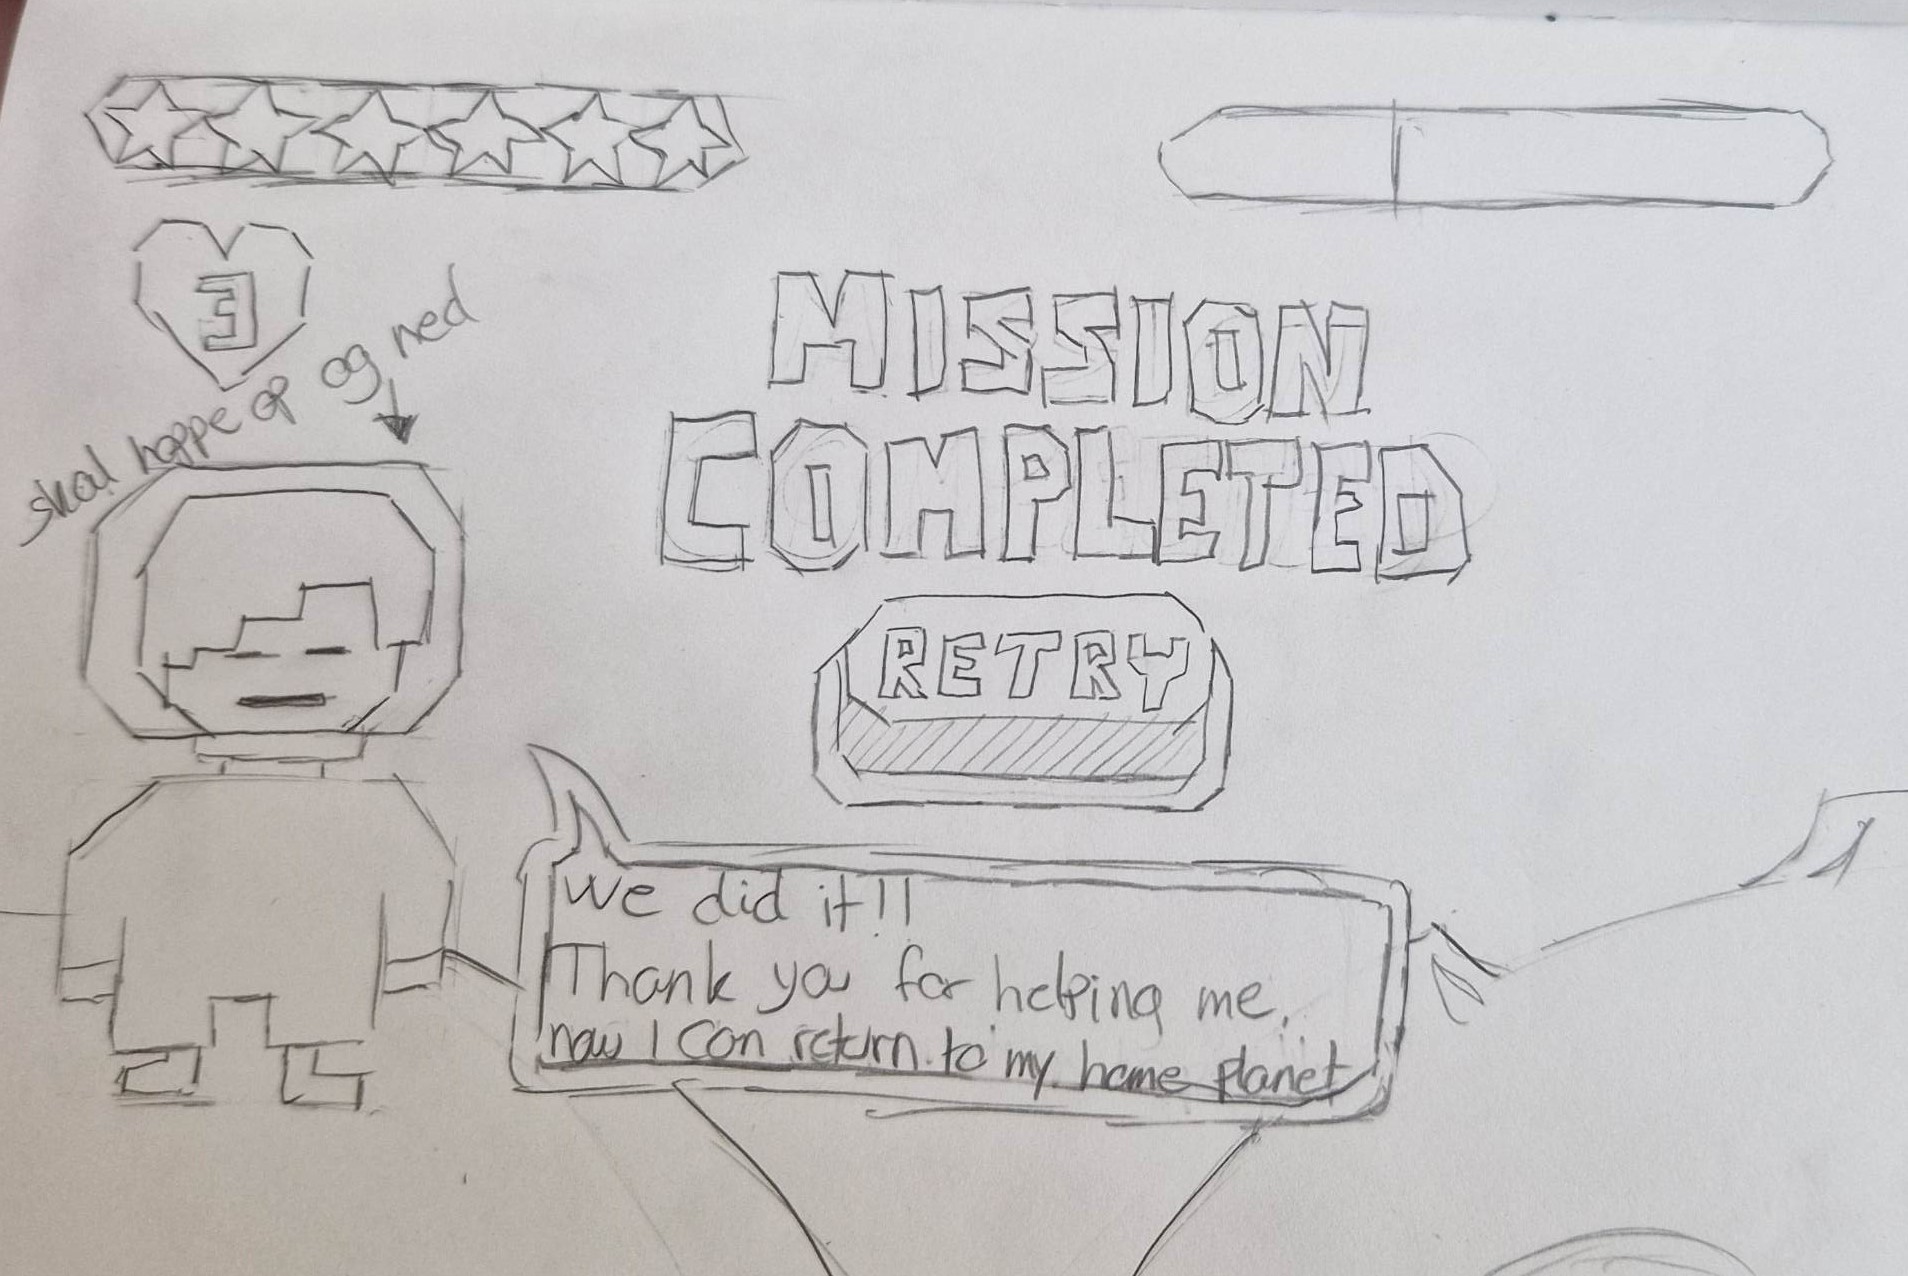 3
skal hoppe op og ned
MISSION
COMPLETED
RETRY
We did it!!
Thank you for helping me.
now I can return to my home planet